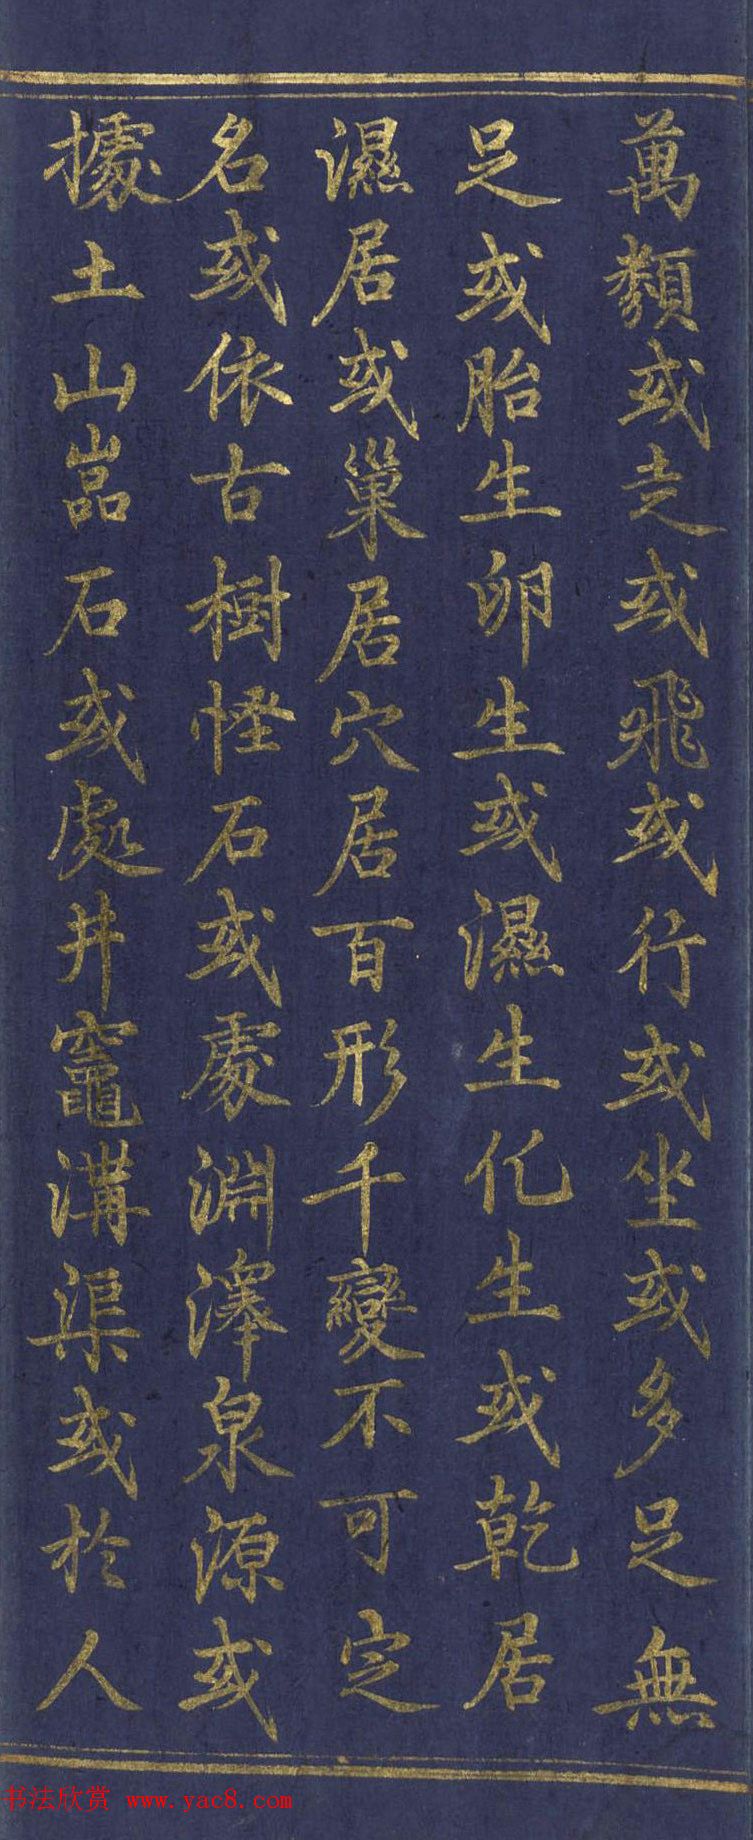 萬類或走或飛或行或坐或多足無
足或胎生卵生或濕生化生或乾居
濕居或巢居穴居百形千變不可定
名或依古樹怪石或處淵澤泉源或
據土山嵓石或處井竈溝渠或於人
书法欣赏 www.yac8.com